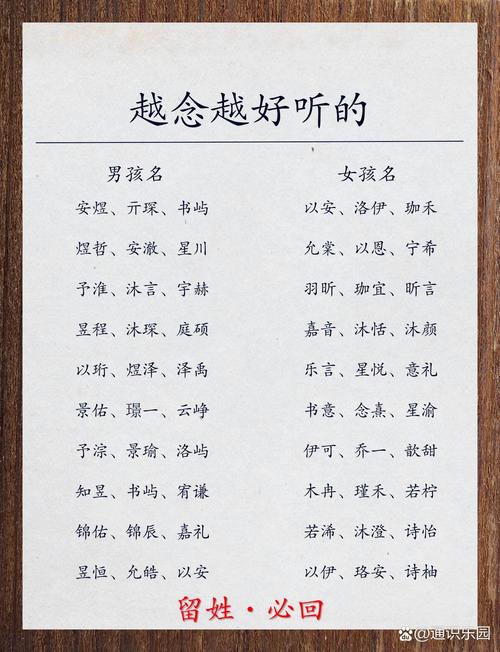 越念越好听的
男孩名 女孩名
安煜、亓琛、书屿 以安、洛伊、珈禾
煜哲、安澈、星川 允棠、以恩、宁希
予淮、沐言、宇赫 羽昕、珈宜、昕言
昱程、沐琛、庭硕 嘉音、沐恬、沐颜
以珩、煜泽、泽禹 乐言、星悦、意礼
景佑、璟一、云峥 书意、念熹、星渝
予淙、景瑜、洛屿 伊可、乔一、歆甜
知昱、书屿、宥谦 木冉、瑾禾、若柠
锦佑、锦辰、嘉礼 若浠、沐澄、诗怡
昱恒、允皓、以安 以伊、珞安、诗柚
留姓·必回
@通识乐园